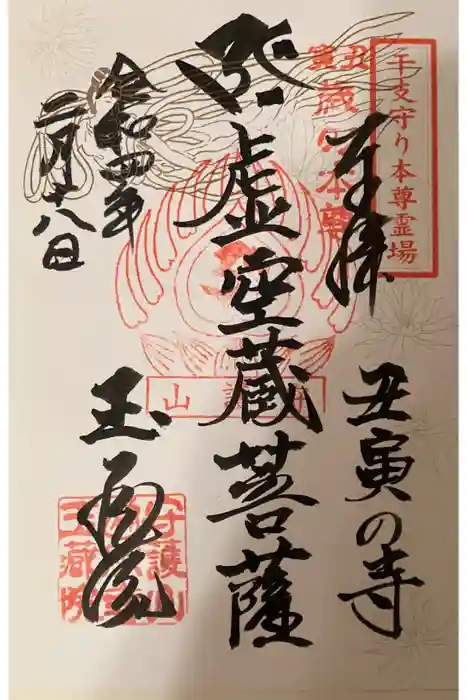 干支守り本尊霊場
奉拝
丑寅の寺
丑寅
歳守本尊
虚空蔵菩薩
守護山
令和四年
二月十八日
玉蔵院